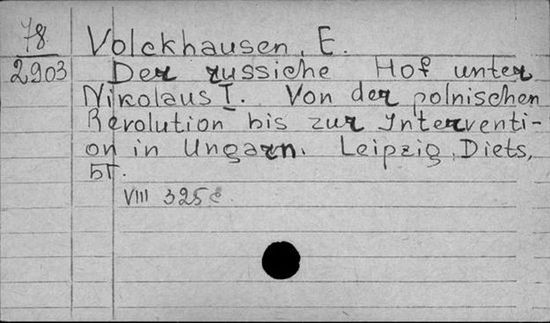 78
2903
Volckhausen, E.
Der russiche Hof unter
Nikolaus I. Von der polnischen
Revolution bis zur Interventi-
on in Ungarn. Leipzig, Diets,
БГ.
VIII 325 с.